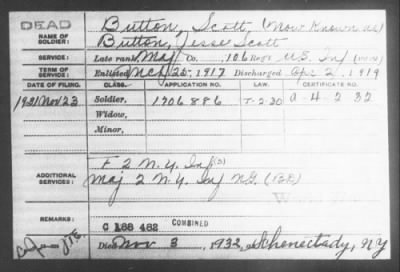 DEAD
NAME OF SOLDIER: Button, Scott, (Now Known as)
Button, Jesse Scott
SERVICE: Late rank, Maj Co. , 106 Reg't U.S. Inf
TERM OF SERVICE: Enlisted Mch 25, 1917 Discharged Apr 2, 1919
DATE OF FILING. CLASS. APPLICATION NO. LAW. CERTIFICATE NO.
1921 Nov 23 Soldier, 1706886 T-2-30 A-4-2-32
Widow,
Minor,
ADDITIONAL SERVICES: F 2 N.Y. Inf
Maj 2 N.Y. Inf N.G.
REMARKS: C 188 482 COMBINED
Died Nov 3, 1932, Schenectady, NY